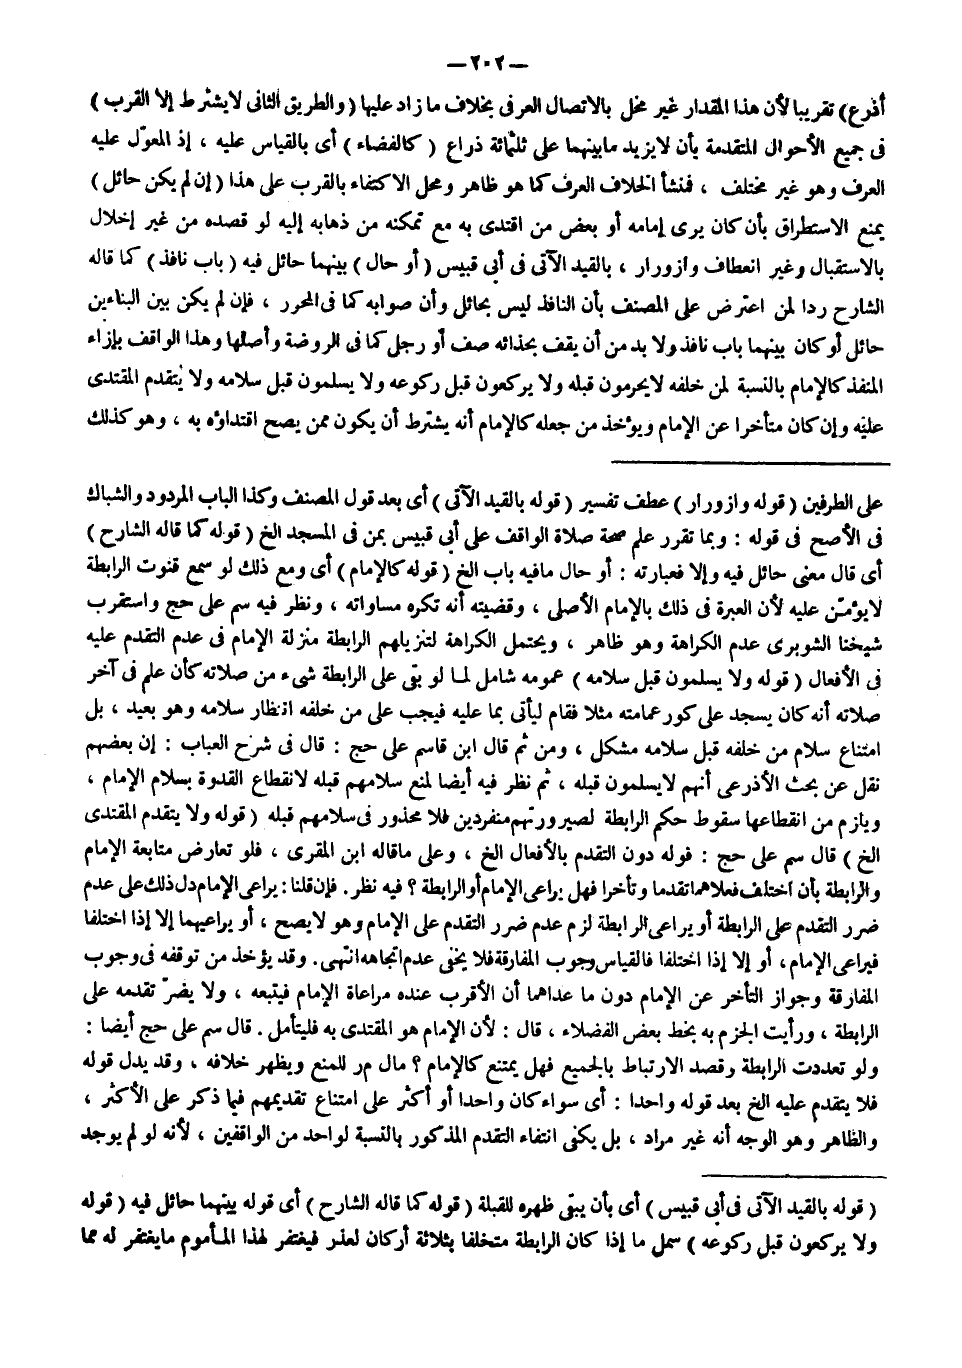 — ٢٠٢ —
أذرع) تقريبا لأن هذا المقدار غير مخل بالاتصال العرفى بخلاف ما زاد عليها (والطريق الثانى لايشترط إلا القرب)
فى جميع الأحوال المتقدمة بأن لايزيد مابينهما على ثلثمائة ذراع (كالفضاء) أى بالقياس عليه ، إذ المعوّل عليه
العرف وهو غير مختلف ، فمنشأ الخلاف العرف كما هو ظاهر ومحل الاكتفاء بالقرب على هذا (إن لم يكن حائل)
يمنع الاستطراق بأن كان يرى إمامه أو بعض من اقتدى به مع تمكنه من ذهابه إليه لو قصده من غير إخلال
بالاستقبال وغير انعطاف وازورار ، بالقيد الآتى فى أبى قبيس (أو حال) بينهما حائل فيه (باب نافذ) كما قاله
الشارح ردا لمن اعترض على المصنف بأن النافذ ليس بحائل وأن صوابه كما فى المحرر ، فإن لم يكن بين البناءين
حائل أو كان بينهما باب نافذ ولا بد من أن يقف بحذائه صف أو رجل كما فى الروضة وأصلها وهذا الواقف بإزاء
المنفذ كالإمام بالنسبة لمن خلفه لايحرمون قبله ولا يركعون قبل ركوعه ولا يسلمون قبل سلامه ولا يتقدم المقتدى
عليه وإن كان متأخرا عن الإمام ويؤخذ من جعله كالإمام أنه يشترط أن يكون ممن يصح اقتداؤه به ، وهو كذلك
على الطرفين (قوله وازورار) عطف تفسير (قوله بالقيد الآتى) أى بعد قول المصنف وكذا الباب المردود والشباك
فى الأصح فى قوله : وبما تقرر علم صحة صلاة الواقف على أبى قبيس بمن فى المسجد الخ (قوله كما قاله الشارح)
أى قال معنى حائل فيه وإلا فعبارته : أو حال مافيه باب الخ (قوله كالإمام) أى ومع ذلك لو سمع قنوت الرابطة
لايؤمّن عليه لأن العبرة فى ذلك بالإمام الأصلى ، وقضيته أنه تكره مساواته ، ونظر فيه سم على حج واستقرب
شيخنا الشوبرى عدم الكراهة وهو ظاهر ، ويحتمل الكراهة لتنزيلهم الرابطة منزلة الإمام فى عدم التقدم عليه
فى الأفعال (قوله ولا يسلمون قبل سلامه) عمومه شامل لما لو بقى على الرابطة شىء من صلاته كأن علم فى آخر
صلاته أنه كان يسجد على كور عمامته مثلا فقام ليأتى بما عليه فيجب على من خلفه انتظار سلامه وهو بعيد ، بل
امتناع سلام من خلفه قبل سلامه مشكل ، ومن ثم قال ابن قاسم على حج : قال فى شرح العباب : إن بعضهم
نقل عن بحث الأذرعى أنهم لايسلمون قبله ، ثم نظر فيه أيضا لمنع سلامهم قبله لانقطاع القدوة بسلام الإمام ،
ويلزم من انقطاعها سقوط حكم الرابطة لصيرورتهم منفردين فلا محذور فى سلامهم قبله (قوله ولا يتقدم المقتدى
الخ) قال سم على حج : قوله دون التقدم بالأفعال الخ ، وعلى ماقاله ابن المقرى ، فلو تعارض متابعة الإمام
والرابطة بأن اختلف فعلاهما تقدما وتأخرا فهل يراعى الإمام أو الرابطة ؟ فيه نظر . فإن قلنا : يراعى الإمام دل ذلك على عدم
ضرر التقدم على الرابطة أو يراعى الرابطة لزم عدم ضرر التقدم على الإمام وهو لايصح ، أو يراعيهما إلا إذا اختلفا
فيراعى الإمام ، أو إلا إذا اختلفا فالقياس وجوب المفارقة فلا يخفى عدم اتجاهه انتهى . وقد يؤخذ من توقفه فى وجوب
المفارقة وجواز التأخر عن الإمام دون ما عداهما أن الأقرب عنده مراعاة الإمام فيتبعه ، ولا يضرّ تقدمه على
الرابطة ، ورأيت الجزم به بخط بعض الفضلاء ، قال : لأن الإمام هو المقتدى به فليتأمل . قال سم على حج أيضا :
ولو تعددت الرابطة وقصد الارتباط بالجميع فهل يمتنع كالإمام ؟ مال مر للمنع ويظهر خلافه ، وقد يدل قوله
فلا يتقدم عليه الخ بعد قوله واحدا : أى سواء كان واحدا أو أكثر على امتناع تقديمهم فيما ذكر على الأكثر ،
والظاهر وهو الوجه أنه غير مراد ، بل يكفى انتفاء التقدم المذكور بالنسبة لواحد من الواقفين ، لأنه لو لم يوجد
(قوله بالقيد الآتى فى أبى قبيس) أى بأن يبقى ظهره للقبلة (قوله كما قاله الشارح) أى قوله بينهما حائل فيه (قوله
ولا يركعون قبل ركوعه) سمل ما إذا كان الرابطة متخلفا بثلاثة أركان لعذر فيغتفر لهذا المأموم مايغتفر له مما